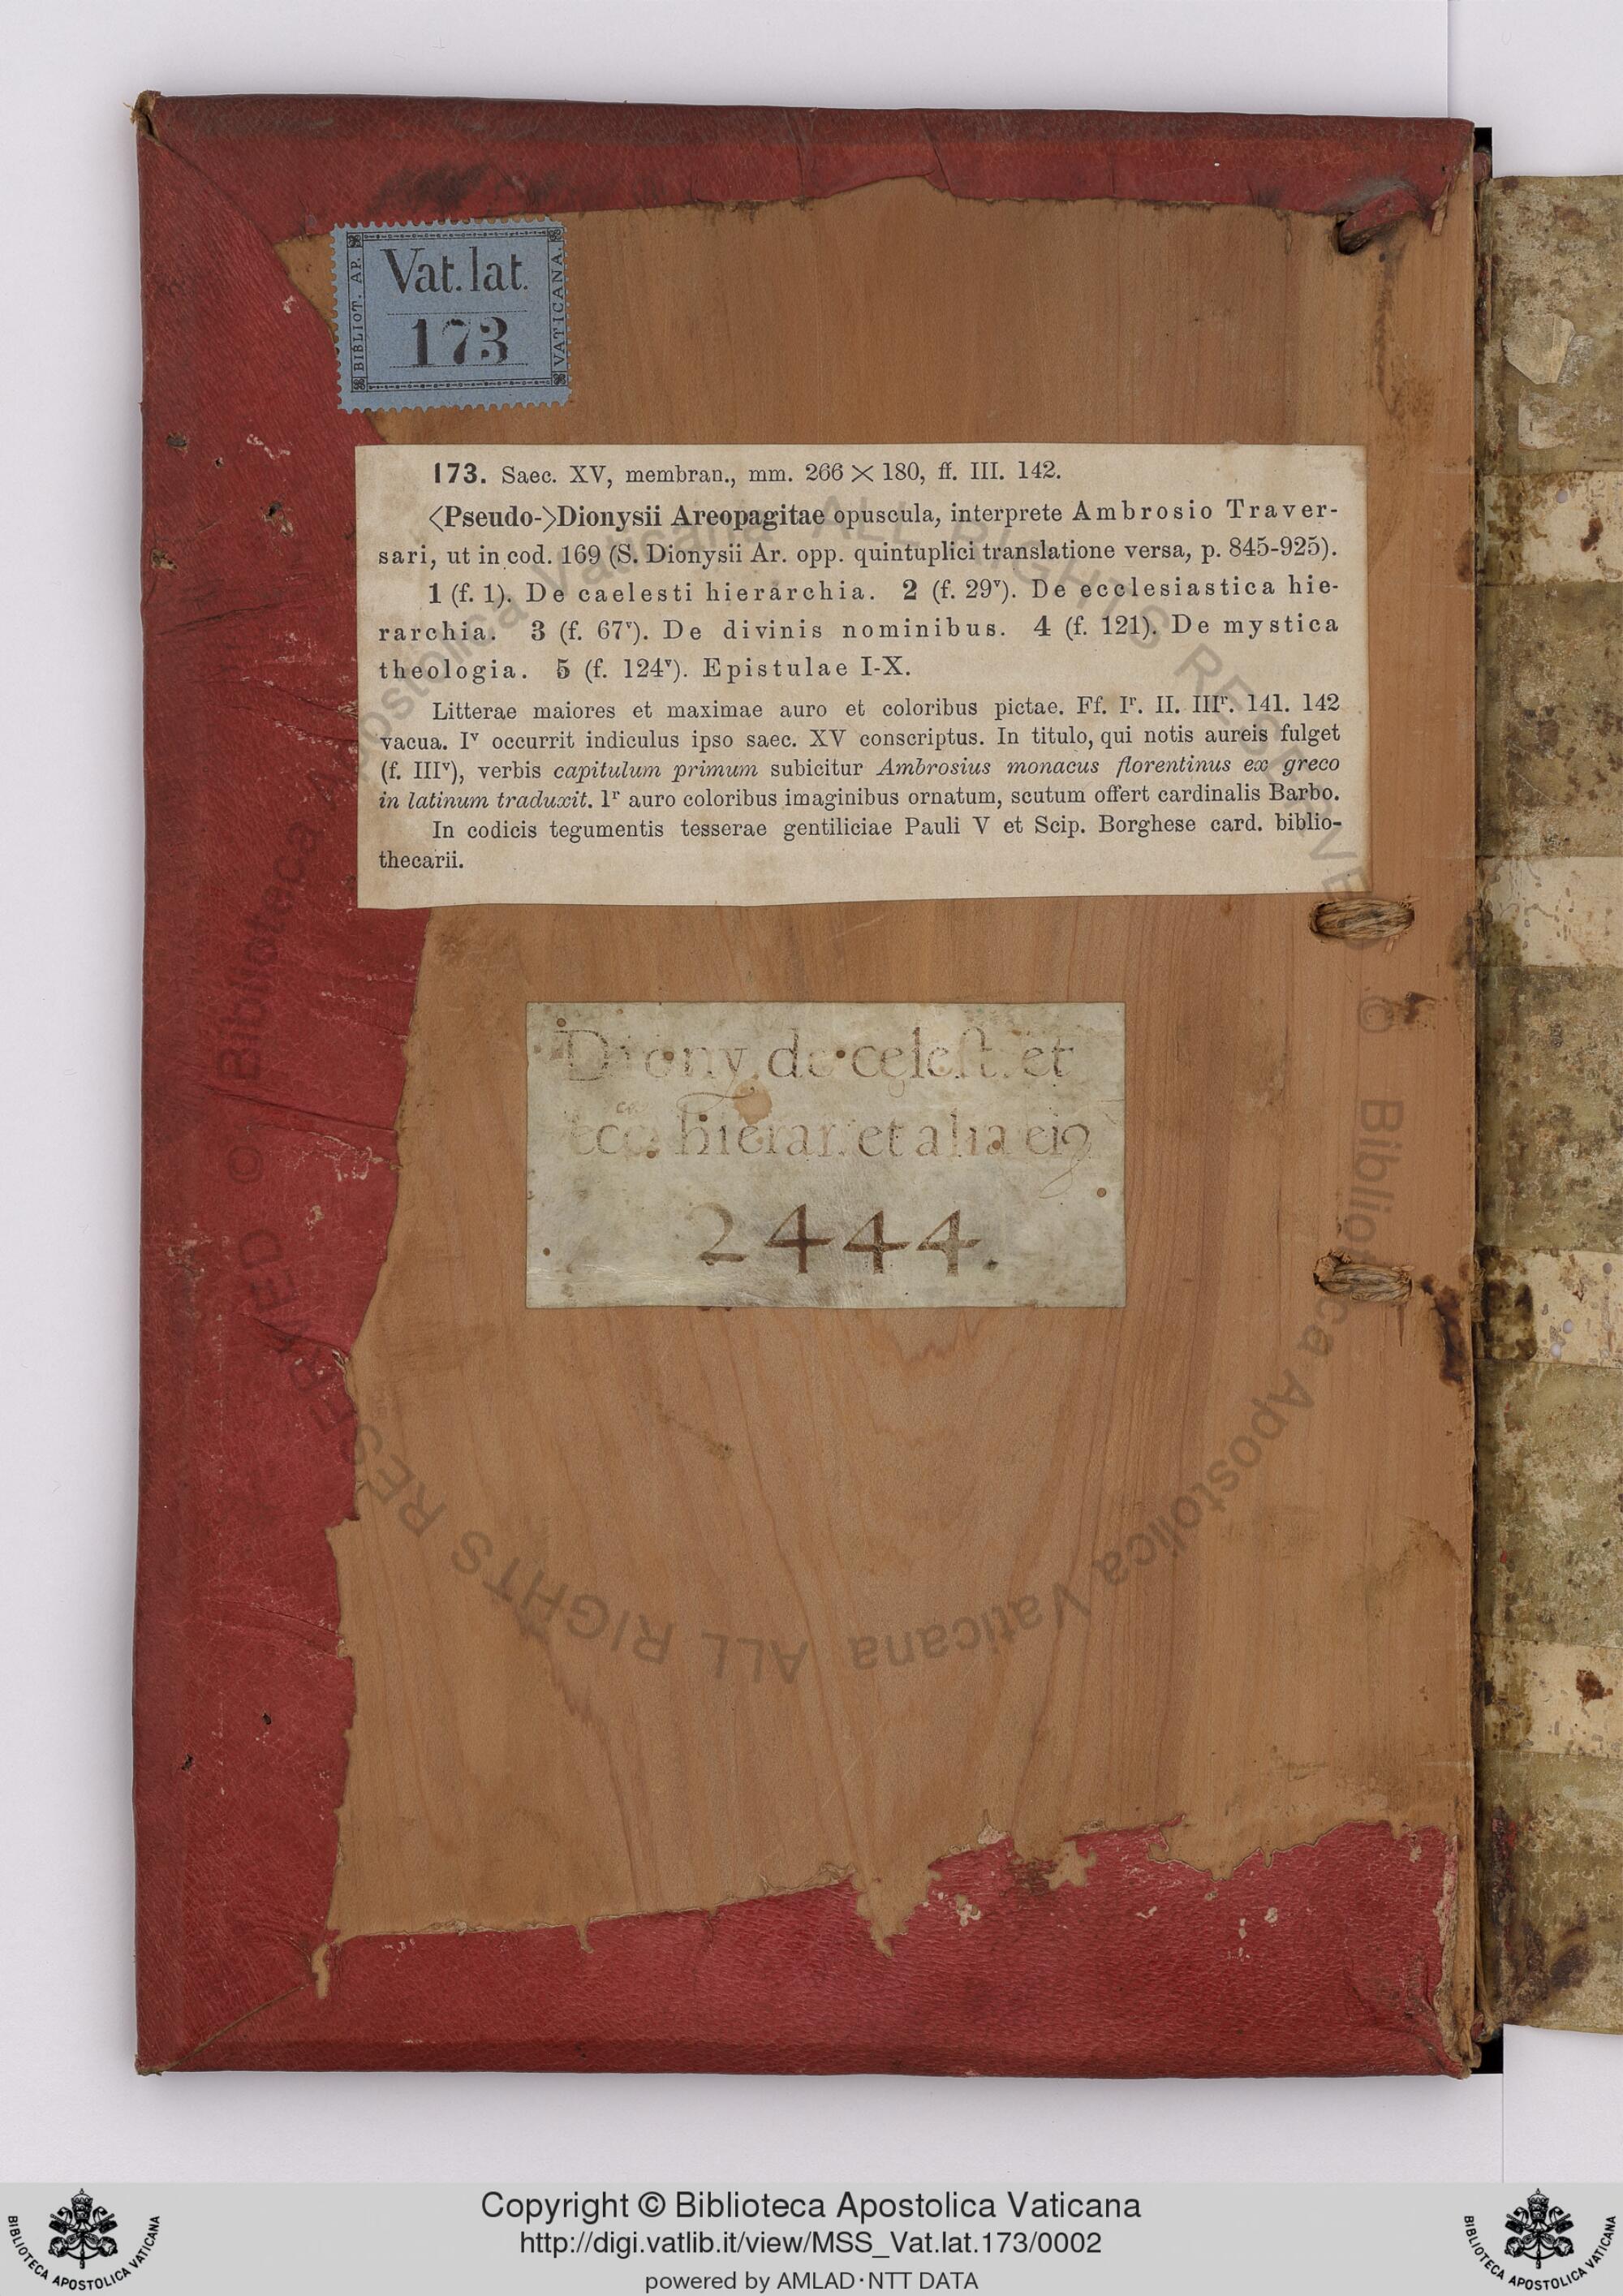 BIBLIOT. AP. VATICANA.
Vat. lat.
173
173. Saec. XV, membran., mm. 266 × 180, ff. III. 142.
<Pseudo->Dionysii Areopagitae opuscula, interprete Ambrosio Traver-
sari, ut in cod. 169 (S. Dionysii Ar. opp. quintuplici translatione versa, p. 845-925).
1 (f. 1). De caelesti hierarchia. 2 (f. 29ᵛ). De ecclesiastica hie-
rarchia. 3 (f. 67ᵛ). De divinis nominibus. 4 (f. 121). De mystica
theologia. 5 (f. 124ᵛ). Epistulae I-X.
Litterae maiores et maximae auro et coloribus pictae. Ff. Iʳ. II. IIIʳ. 141. 142
vacua. Iᵛ occurrit indiculus ipso saec. XV conscriptus. In titulo, qui notis aureis fulget
(f. IIIᵛ), verbis capitulum primum subicitur Ambrosius monacus florentinus ex greco
in latinum traduxit. 1ʳ auro coloribus imaginibus ornatum, scutum offert cardinalis Barbo.
In codicis tegumentis tesserae gentiliciae Pauli V et Scip. Borghese card. biblio-
thecarii.
Diony. de celest. et
hierar. et alia ei9
2444.
© Biblioteca Apostolica Vaticana ALL RIGHTS RESERVED © Biblioteca Apostolica Vaticana ALL RIGHTS RESERVED
Copyright © Biblioteca Apostolica Vaticana
http://digi.vatlib.it/view/MSS_Vat.lat.173/0002
powered by AMLAD·NTT DATA
BIBLIOTECA APOSTOLICA VATICANA
BIBLIOTECA APOSTOLICA VATICANA